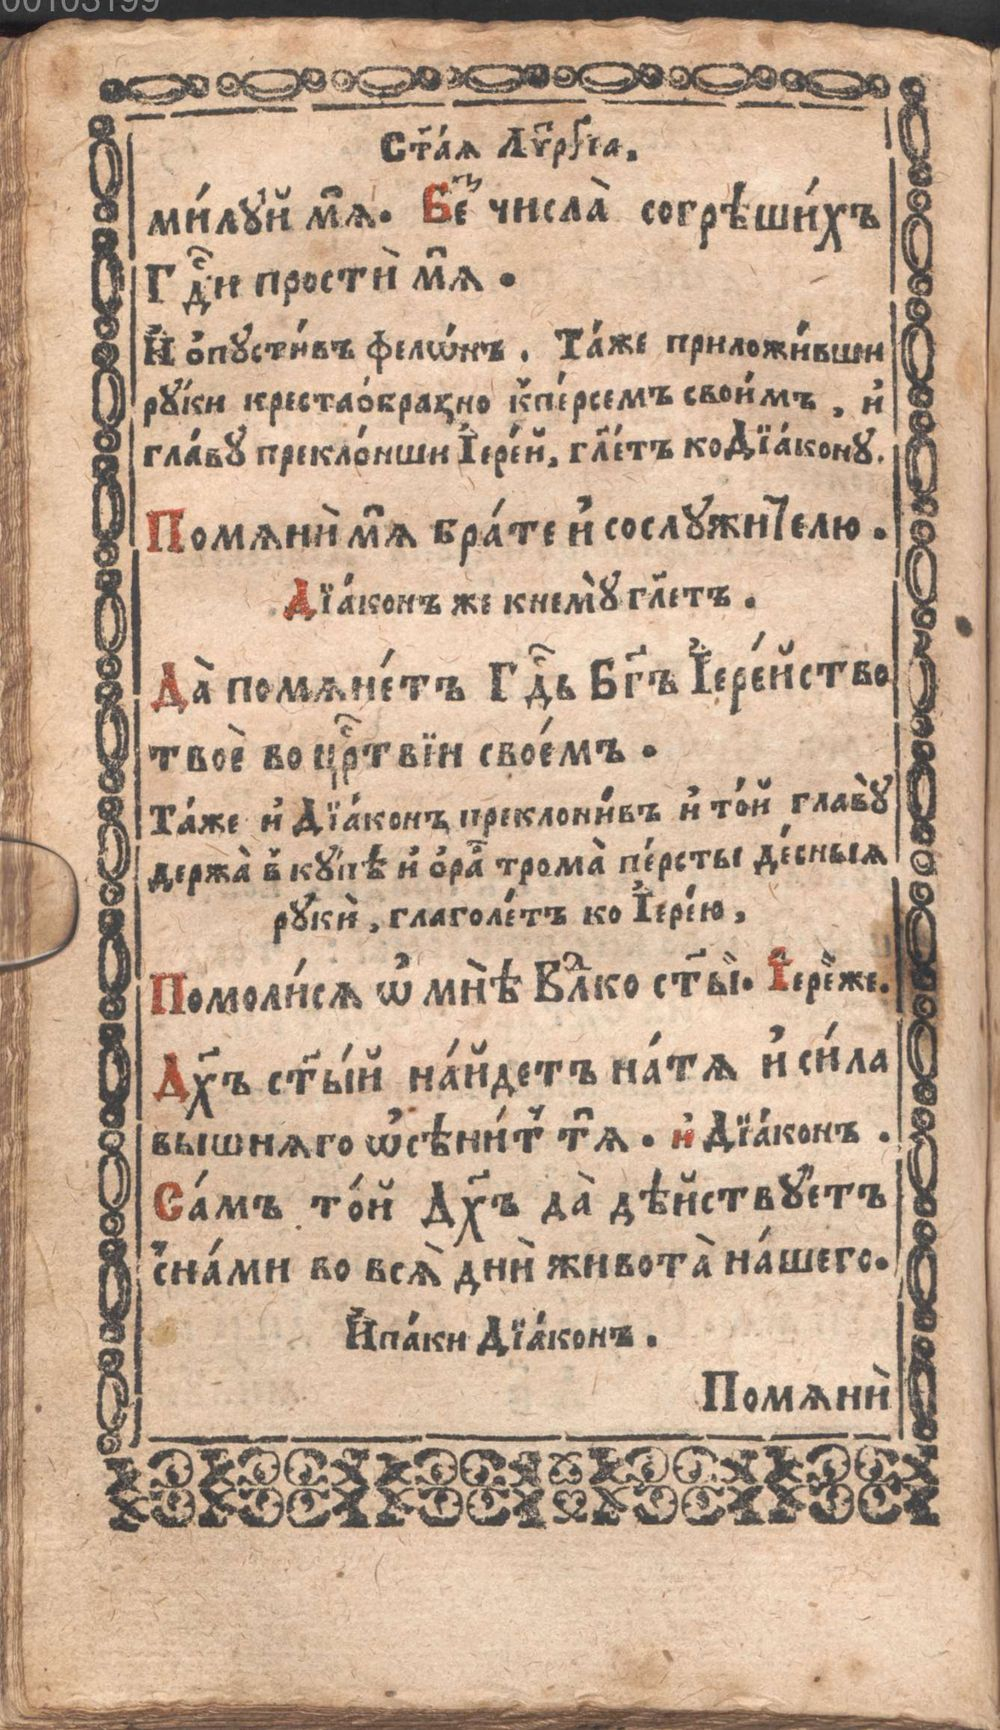 00103199
Ст҃а́ѧ Лѵ҃ргїа.
ми́лꙋй мѧ̀. Беⷥ числа̀ согрѣши́хъ
Гдⷭ҇и простѝ мѧ̀.
И҆ ѻ҆пꙋсти́въ фелѡ́нъ. Та́же приложи́вши
рꙋ́ки крестаѻ́бразно к̾пе́рсемъ свои́мъ, и҆
гла́вꙋ прекло́нши І҆ере́й, гл҃етъ ко Дїа́конꙋ.
Помѧнѝ мѧ̀ бра́те и҆ сослꙋжи́телю.
Дїа́конъ же кнемꙋ̀ гл҃етъ.
Да̀ помѧне́тъ Гдⷭ҇ь Бг҃ъ І҆ере́йство
твоѐ во црⷭ҇твїи свое́мъ.
Та́же и҆ Дїа́конъ преклони́въ и҆ то́й главꙋ̀
держа̀ в̾ кꙋ́пѣ и҆ ѻ҆ра́ трома̀ пе́рсты де́сныѧ
рꙋкѝ, глаголе́тъ ко І҆ере́ю,
Помоли́сѧ ѡ҆ мнѣ̀ Влⷣко ст҃ы́й. І҆ерѐже.
Дх҃ъ ст҃ы́й на́йдетъ на́тѧ и҆ си́ла
вышнѧго ѡ҆сѣни́т̾ тѧ̀. и҆ Дїа́конъ.
Са́мъ то́й Дх҃ъ да̀ дѣ́йствꙋетъ
с̾на́ми во всѧ̀ днѝ живота̀ на́шего.
И҆па́ки Дїа́конъ.
Помѧнѝ